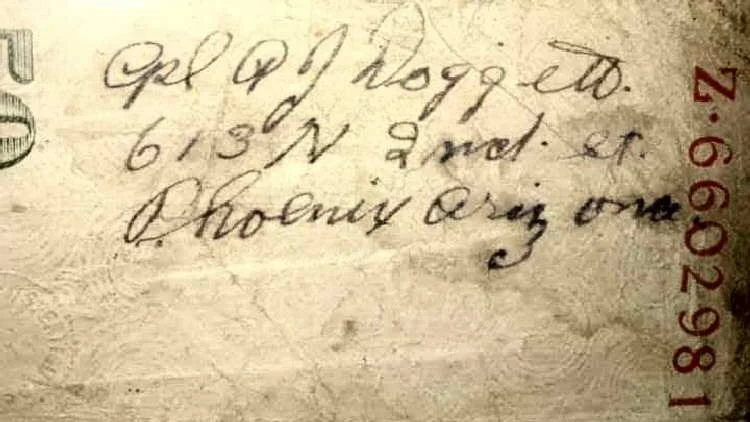 Cpl A J Doggett.
613 N 2nd. St.
Phoenix Arizona
Z·6602981
50